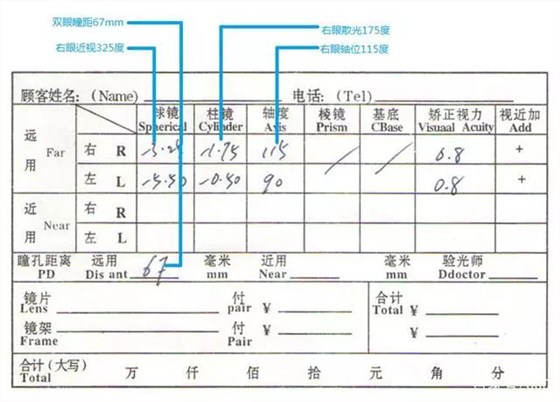 双眼瞳距67mm
右眼散光175度
右眼近视325度
右眼轴位115度
顾客姓名：(Name) 电话：(Tel)
球镜 柱镜 轴度 棱镜 基底 矫正视力 视近加
Spherical Cylinder Axis Prism CBase Visuaal Acuity Add
远用 Far 右 R -3.25 -1.75 115 / / 0.8 +
左 L -5.50 -0.50 90 0.8 +
近用 Near 右 R
左 L
瞳孔距离 远用 毫米 近用 毫米 验光师
PD Dis ant 67 mm Near mm Ddoctor
镜片 付 ¥ 合计
Lens pair Total ¥
镜架 付 ¥ ¥
Frame Pair
合计(大写) 万 仟 佰 拾 元 角 分
Total